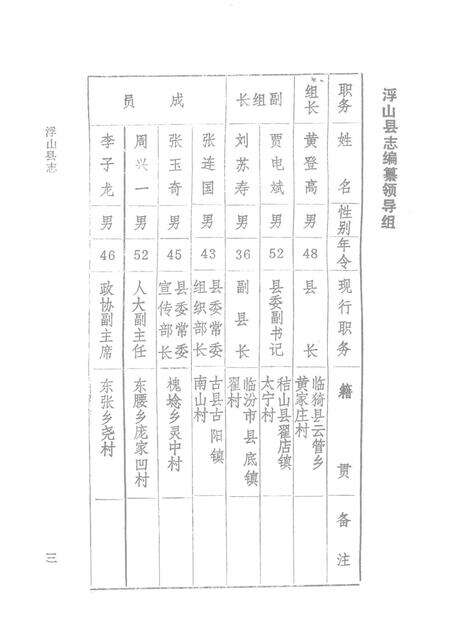 浮山县志编纂领导组
职务 姓名 性别 年令 现行职务 籍贯 备注
组长 黄登高 男 48 县长 临猗县云管乡
黄家庄村
副组长 贾电斌 男 52 县委副书记 稷山县翟店镇
太宁村
刘苏寿 男 36 副县长 临汾市县底镇
翟村
成员 张连国 男 43 县委常委
组织部长 古县古阳镇
南山村
张玉奇 男 45 县委常委
宣传部长 槐埝乡灵中村
周兴一 男 52 人大副主任 东腰乡庞家凹村
李子龙 男 46 政协副主席 东张乡尧村
浮山县志
三